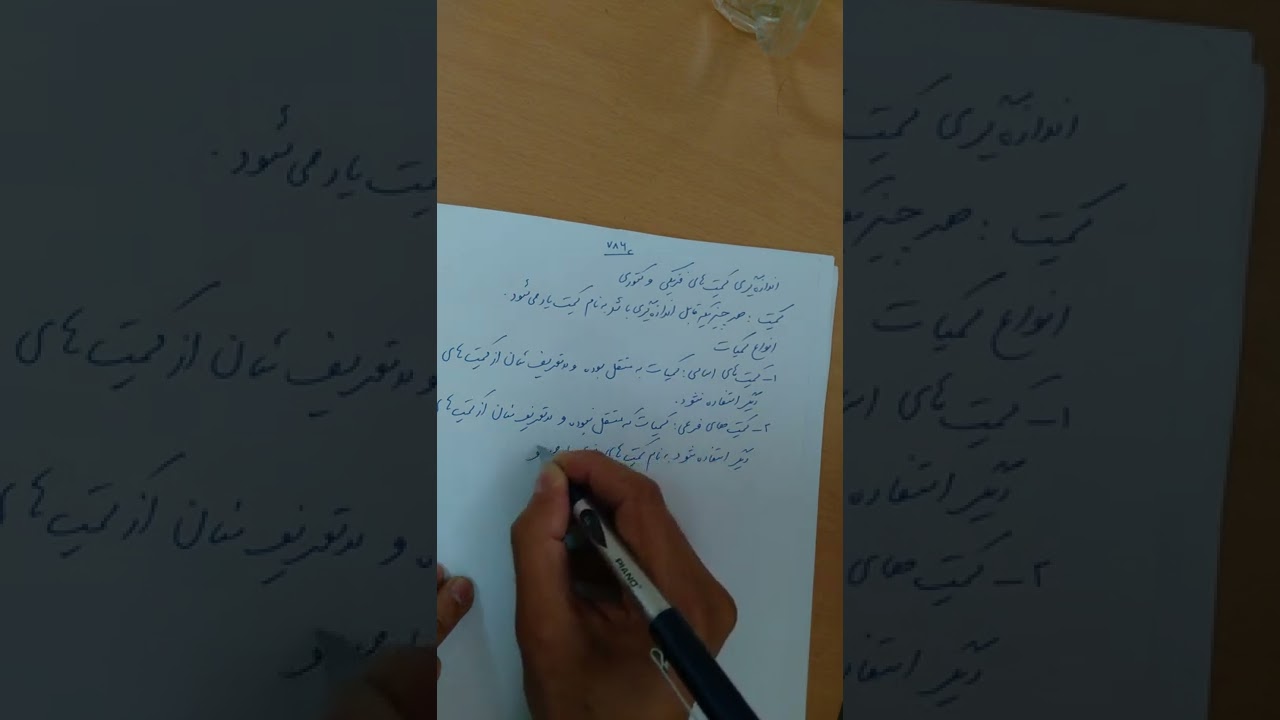 ۷۸۶
اندازه‌گیری کمیت‌های فزیکی و وکتوری
کمیت : هر چیزیکه قابل اندازه‌گیری باشد به نام کمیت یاد می‌شود.
انواع کمیات
۱- کمیت‌های اساسی : کمیات که مستقل بوده و در تعریف شان از کمیت‌های
دیگر استفاده نشود.
۲- کمیت‌های فرعی : کمیات که مستقل نبوده و در تعریف شان از کمیت‌های
دیگر استفاده شود به نام کمیت‌های
PIANO